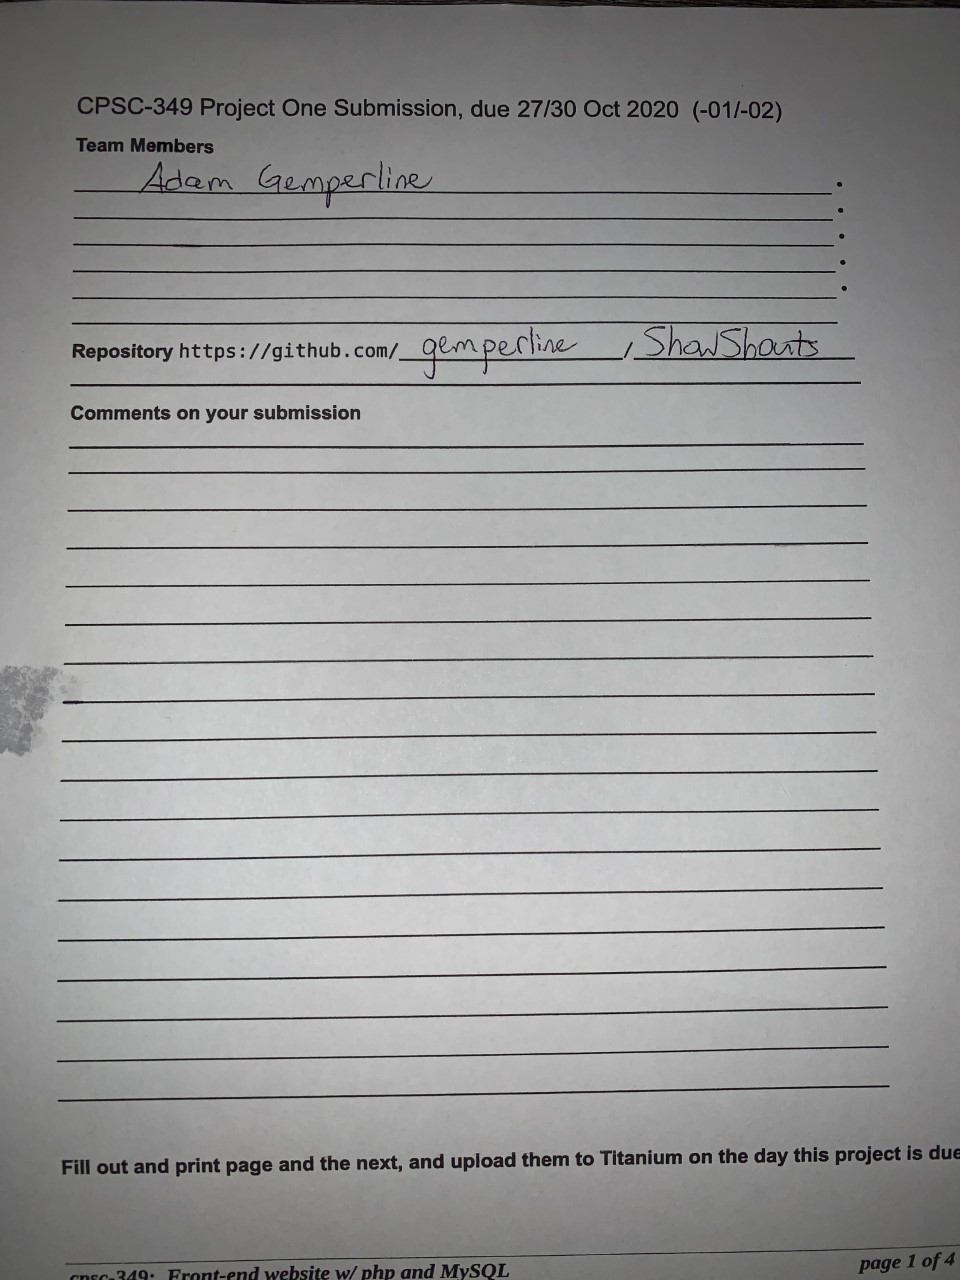 CPSC-349 Project One Submission, due 27/30 Oct 2020 (-01/-02)
Team Members
Adam Gemperline
Repository https://github.com/ gemperline / ShowShouts
Comments on your submission
Fill out and print page and the next, and upload them to Titanium on the day this project is due
cpsc-349: Front-end website w/ php and MySQL page 1 of 4